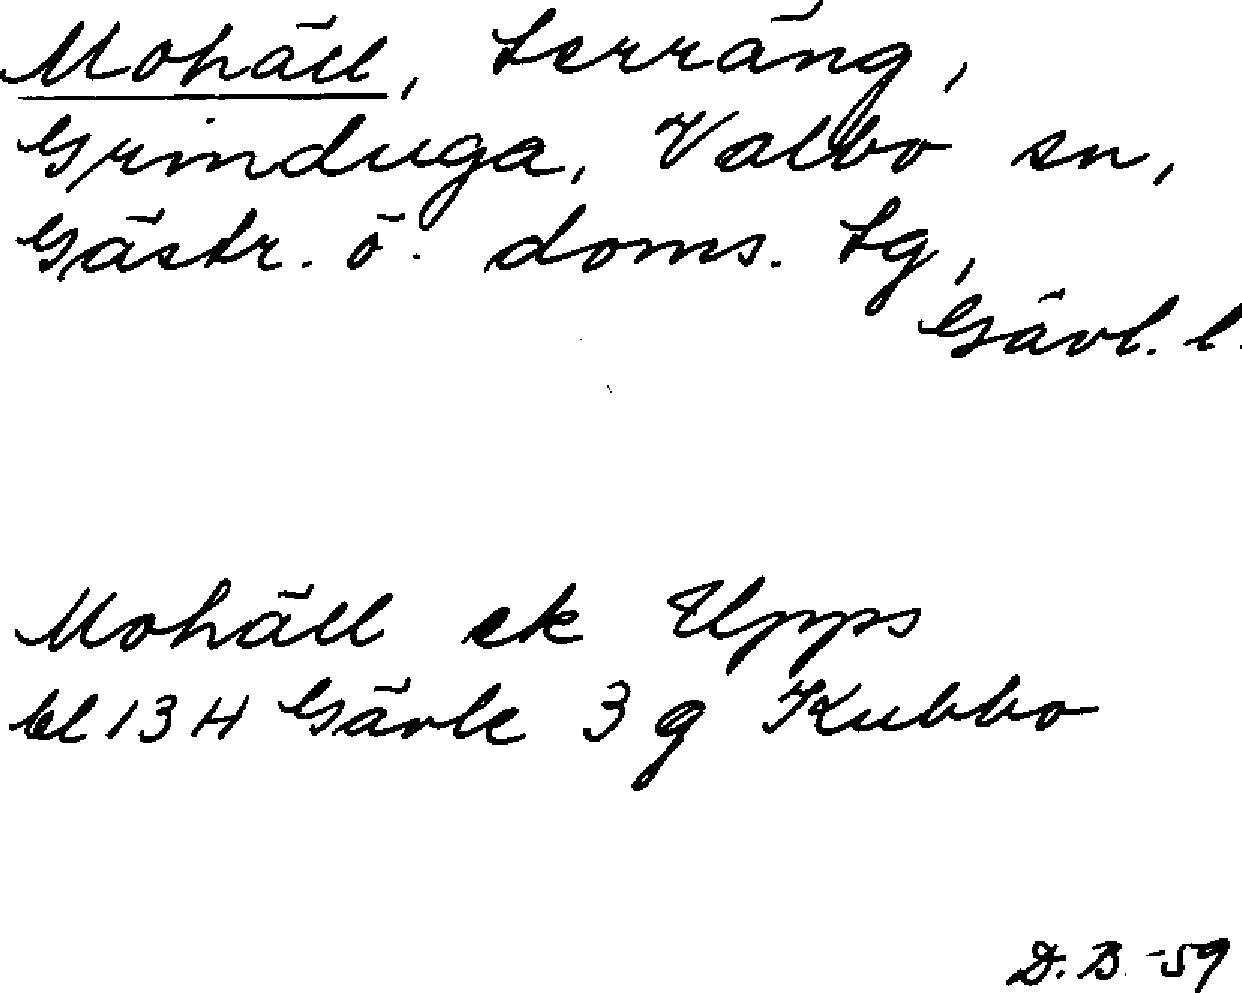 Mohäll, terräng,
Grinduga, Valbo sn,
Gästr. ö. doms. tg,
Gävl. l.
Mohäll ek Upps
bl 13 H Gävle 3 g Kubbo
D.B. -59